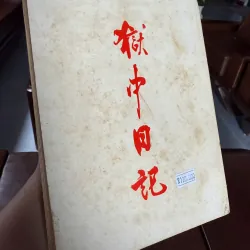 獄中日記